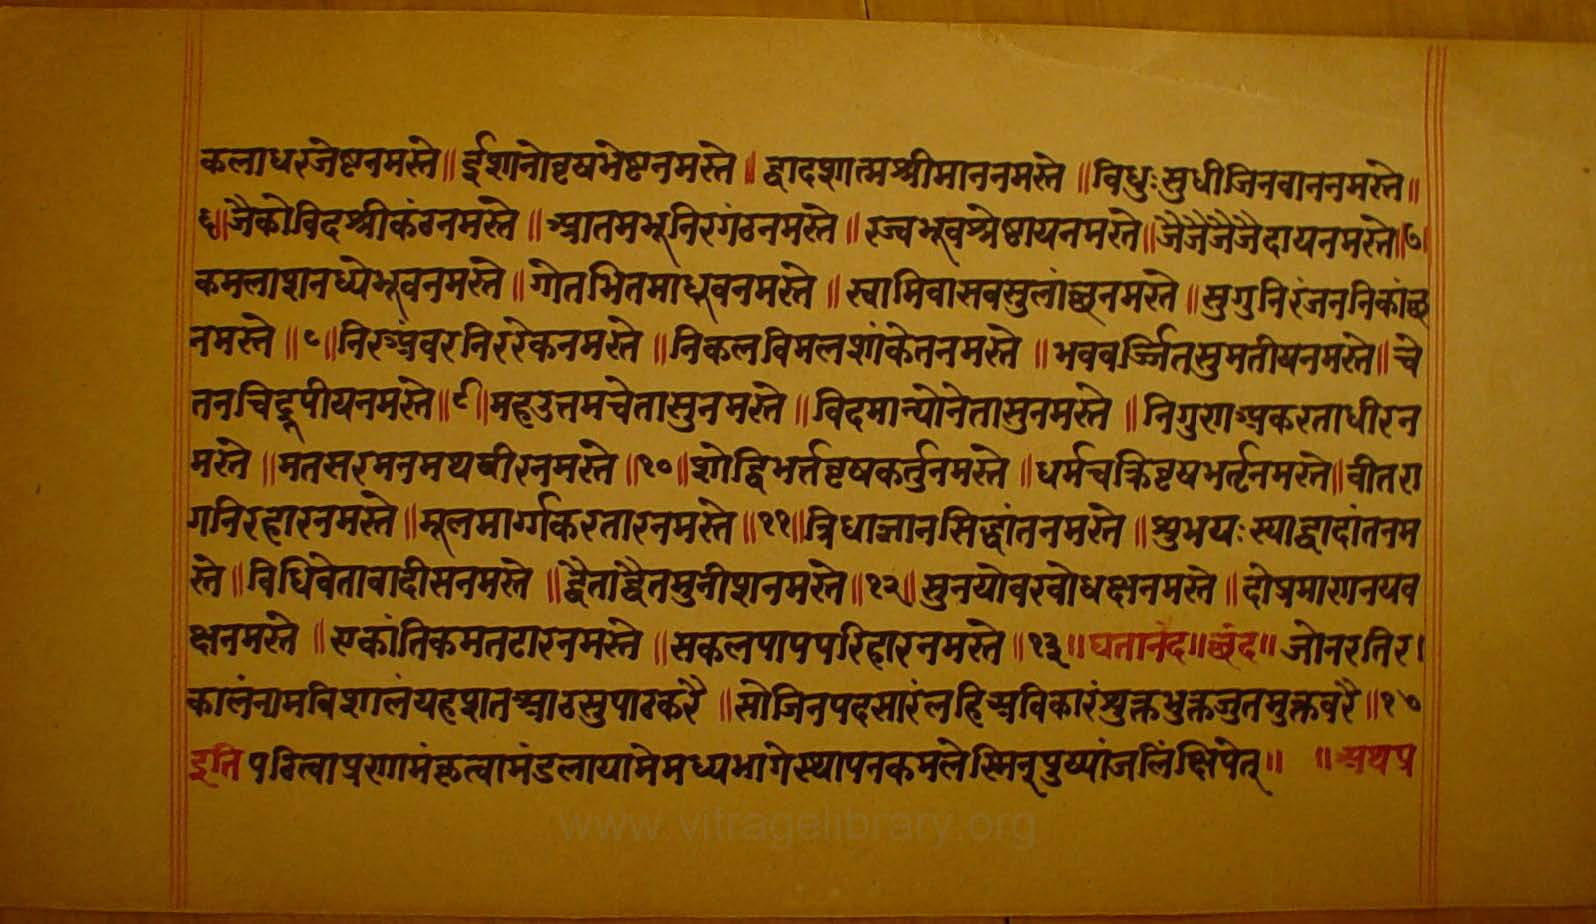 कलाधरजेष्टनमस्ते॥ ईशानोवृषभेष्टनमस्ते॥ द्वादशात्मश्रीमाननमस्ते॥ विधुःसुधीजिनवाननमस्ते॥
६॥ जैकोविदश्रीकंठनमस्ते॥ आतमभूनिरगंठनमस्ते॥ रज्वभूवश्रेष्ठायनमस्ते॥ जैजैजैजैदायनमस्ते॥७॥
कमलाशनध्येभूवनमस्ते॥ गोतभितमाधूवनमस्ते॥ स्वामिवासवसुलांछनमस्ते॥ सुगुनिरंजननिकांछ
नमस्ते॥८॥ निरअंवरनिररेकनमस्ते॥ निकलविमलशंकेतनमस्ते॥ भववर्ज्जितसुमतीयनमस्ते॥ चे
तनचिद्रूपीयनमस्ते॥९॥ महउत्तमचेतासुनमस्ते॥ विदमान्योनेतासुनमस्ते॥ निगुणअकरताधीरन
मस्ते॥ मतसरमनमथवीरनमस्ते॥१०॥ शोद्विभर्त्तवृषकर्तुनमस्ते॥ धर्मचक्रिवृषभर्तृनमस्ते॥ वीतरा
गनिरहारनमस्ते॥ मूलमार्ग्गकरतारनमस्ते॥११॥ त्रिधाज्ञानसिद्धांतनमस्ते॥ शुभयःस्याद्वादांतनम
स्ते॥ विधिवेतावादीसनमस्ते॥ द्वैताद्वैतमुनीशनमस्ते॥१२॥ सुनयोवरवोधक्षनमस्ते॥ दोप्रमाणनयव
क्षनमस्ते॥ एकांतिकमतटारनमस्ते॥ सकलपापपरिहारनमस्ते॥१३॥ घतानंद॥ छंद॥ जोनरतिर।
कालंनामविशालंयहशतआठसुपाठकरै॥ सोजिनपदसारंलहिअविकारंशुक्तभुक्तजुतमुक्तवरै॥१४॥
इति पठित्वाप्रणामंकृत्वामंडलायामेमध्यभागेस्थापनकमलेस्मिन्पुष्पांजलिंक्षिपेत्॥ ॥अथप्र
www.vitragelibrary.org